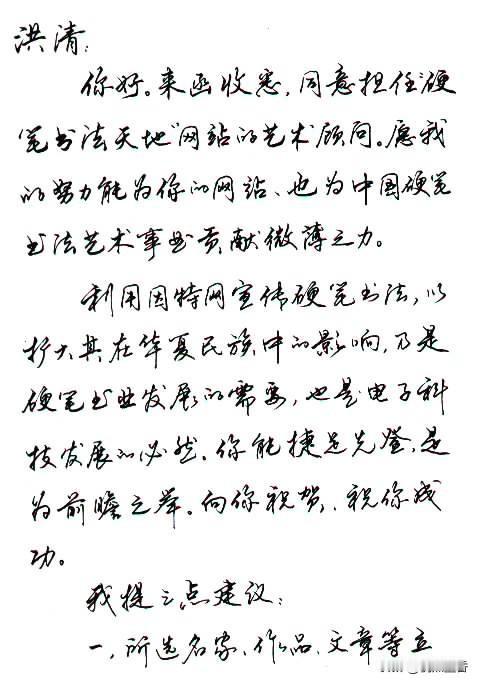 洪清：
你好。来函收悉，同意担任“硬
笔书法天地”网站的艺术顾问。愿我
的努力能为你的网站、也为中国硬笔
书法艺术事业贡献微薄之力。
利用因特网宣传硬笔书法，以
扩大其在华夏民族中的影响，乃是
硬笔书业发展的需要，也是电子科
技发展的必然。你能捷足先登，是
为前瞻之举。向你祝贺，祝你成
功。
我提三点建议：
一、所选名家、作品、文章等立